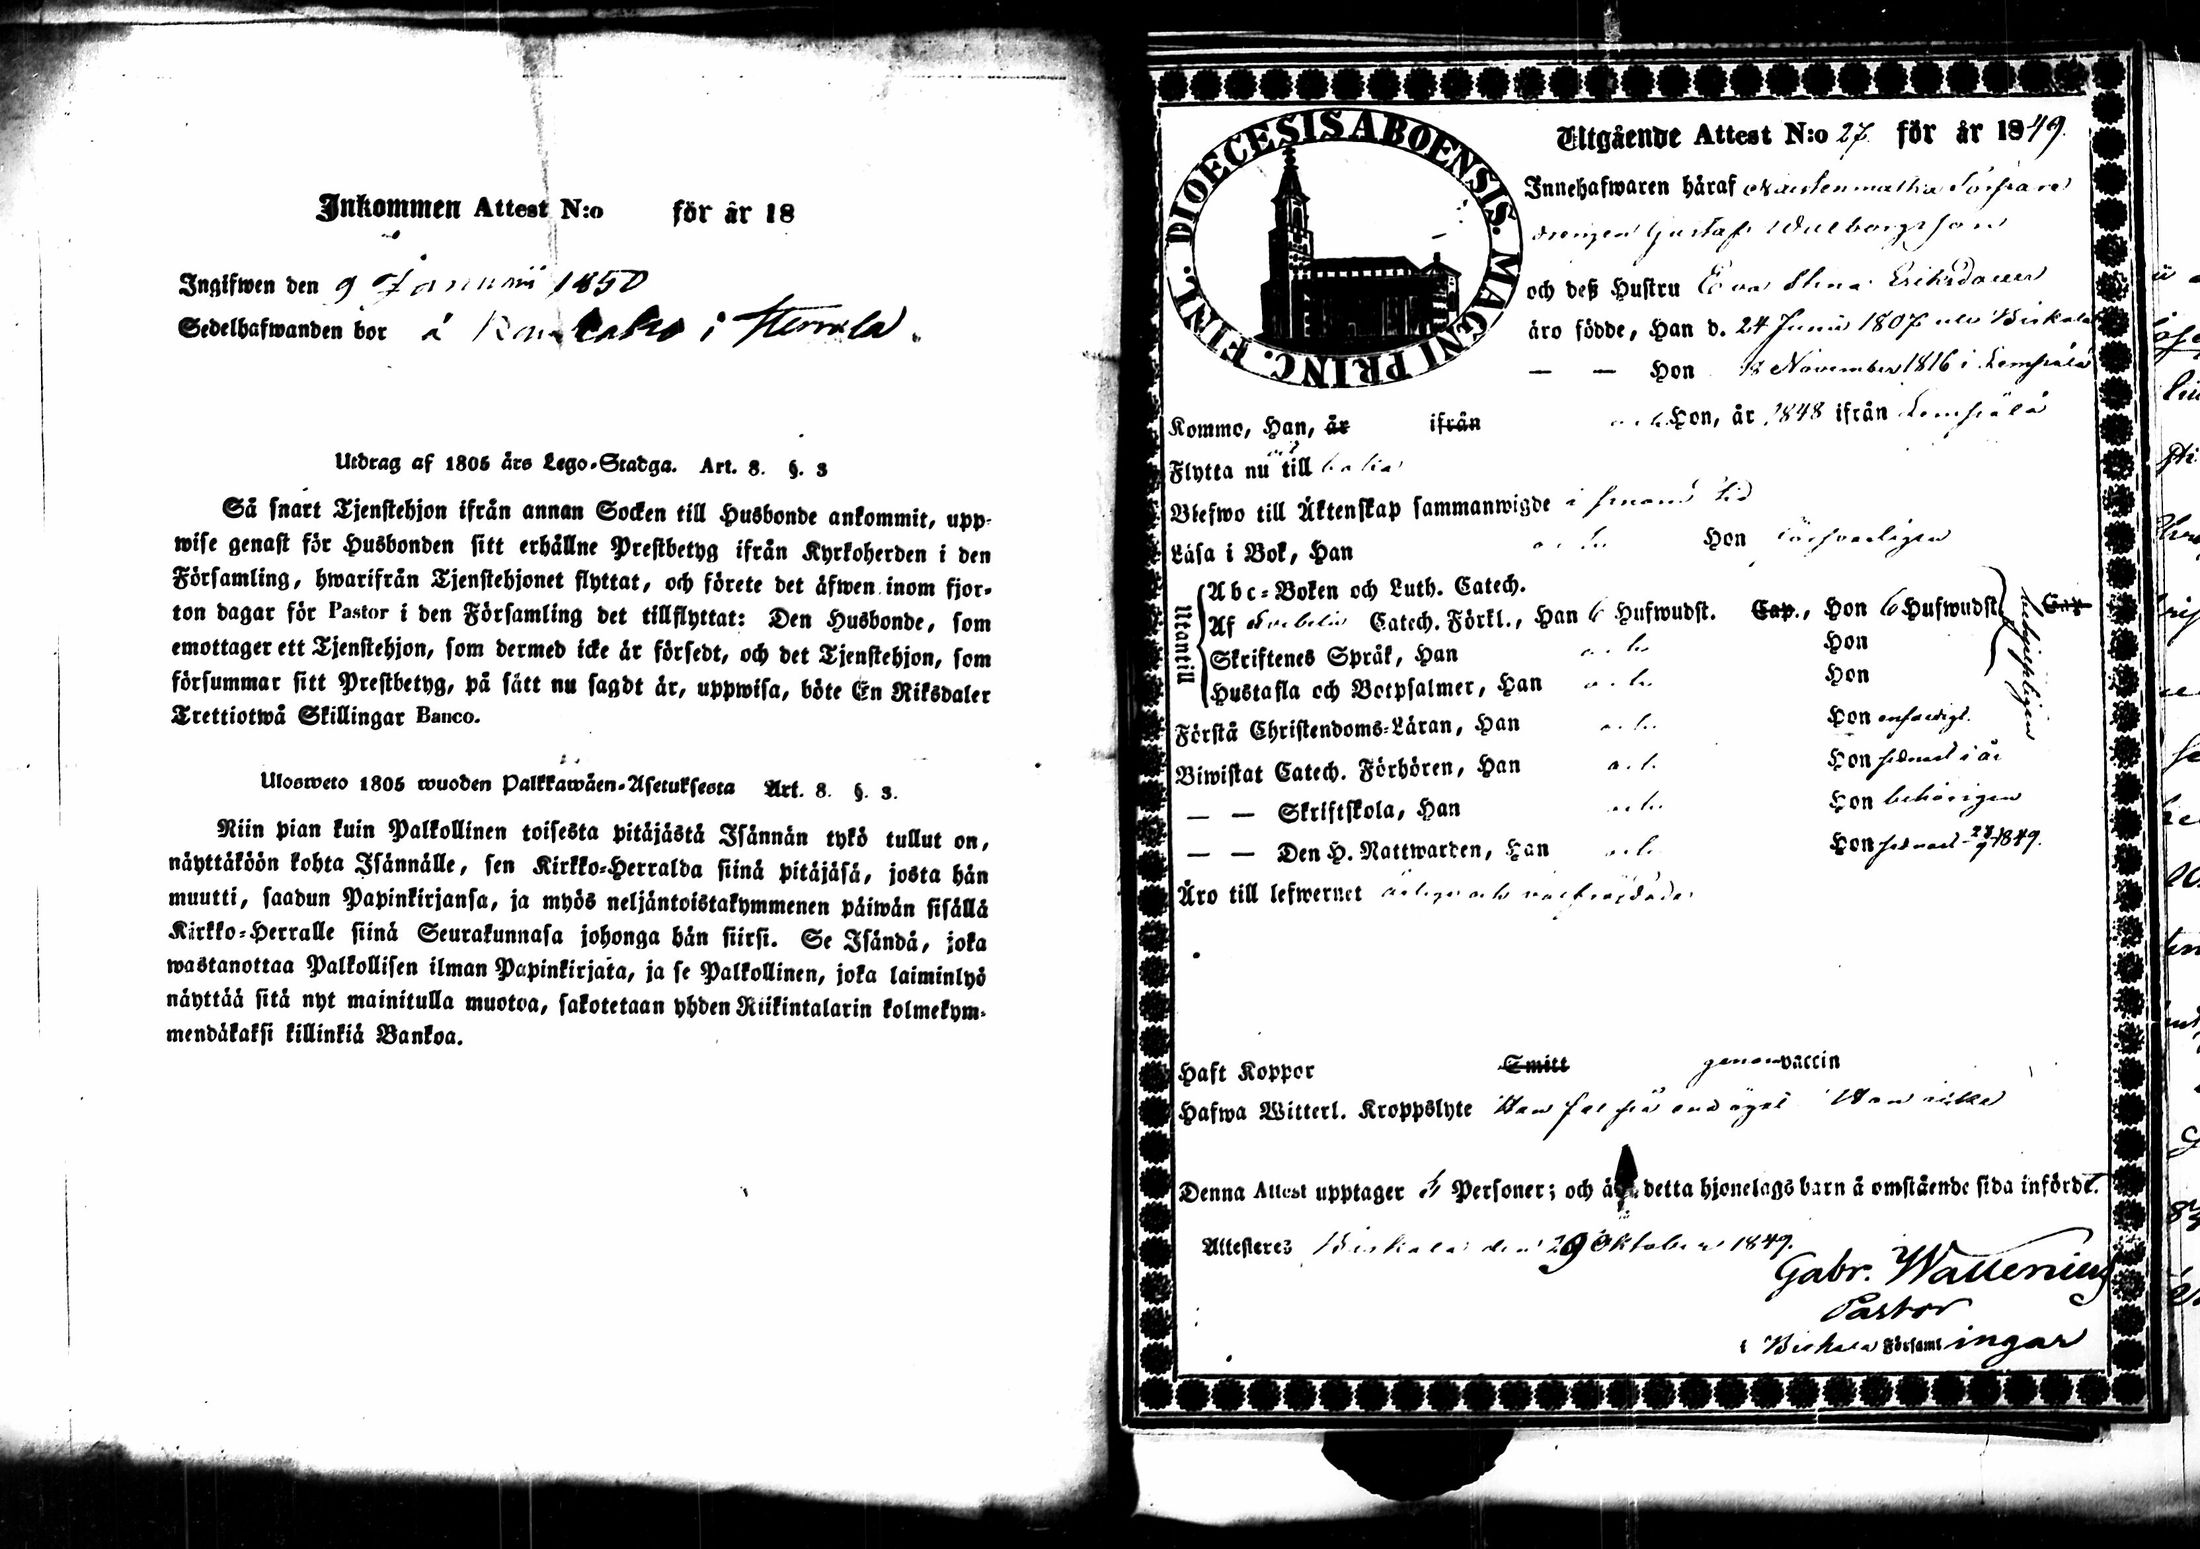 Inkommen Attest N:o för år 18
Ingifwen den 9 Januarii 1850
Sedelhafwanden bor å i Herrala.
Utdrag af 1805 års Lego-Stadga. Art. 8. §. 3
Så snart Tjenstehjon ifrån annan Socken till Husbonde ankommit, upp-
wise genast för Husbonden sitt erhållne Prestbetyg ifrån Kyrkoherden i den
Församling, hwarifrån Tjenstehjonet flyttat, och förete det äfwen inom fjor-
ton dagar för Pastor i den Församling det tillflyttat: Den Husbonde, som
emottager ett Tjenstehjon, som dermed icke är försedt, och det Tjenstehjon, som
försummar sitt Prestbetyg, på sätt nu sagdt är, uppwisa, böte En Riksdaler
Trettiotwå Skillingar Banco.
Ulosweto 1805 wuoden Palkkawäen-Asetuksesta Art. 8. §. 3.
Niin pian kuin Palkollinen toisesta pitäjästä Isännän tykö tullut on,
näyttäköön kohta Isännälle, sen Kirkko-Herralda siinä pitäjäsä, josta hän
muutti, saadun Papinkirjansa, ja myös neljäntoistakymmenen päiwän sisällä
Kirkko-Herralle siinä Seurakunnasa johonga hän siirsi. Se Isändä, joka
wastanottaa Palkollisen ilman Papinkirjata, ja se Palkollinen, joka laiminlyö
näyttää sitä nyt mainitulla muotoa, sakotetaan yhden Riikintalarin kolmekym-
mendäkaksi killinkiä Bankoa.
DIOECESIS ABOENSIS. MAGNI PRINC. FINL.
Utgående Attest N:o 27 för år 1849.
Innehafwaren häraf
drengen Gustaf
och deß Hustru Eva Stina Eriksdotter
äro födde, Han d. 24 Junii 1807 Birkala
— — Hon November 1816 i Lempälä
Kommo, Han, år ifrån och Hon, år 1848 ifrån Lempälä
Flytta nu till
Blefwo till Äktenskap sammanwigde i
Läsa i Bok, Han och Hon försvarligen
Utantill
Abc-Boken och Luth. Catech.
Af Catech. Förkl., Han 6 Hufwudst. Cap., Hon 6 Hufwudst. Cap
Skriftenes Språk, Han och Hon
Hustafla och Botpsalmer, Han och Hon
Förstå Christendoms-Läran, Han och Hon enfaldigt.
Biwistat Catech. Förhören, Han och Hon sednast i år
— — Skriftskola, Han och Hon behörigen
— — Den H. Nattwarden, Han och Hon sednast 1849.
Äro till lefwernet ärliga och
Haft Koppor Smitt genom vaccin
Hafwa Witterl. Kroppslyte Han fel på ena ögat Hon icke
Denna Attest upptager Personer; och detta hjonelags barn å omstående sida införde.
Attesteres Birkala den 29 Oktober 1849.
Gabr. Wallenius
Pastor
i Birkala Församlingar